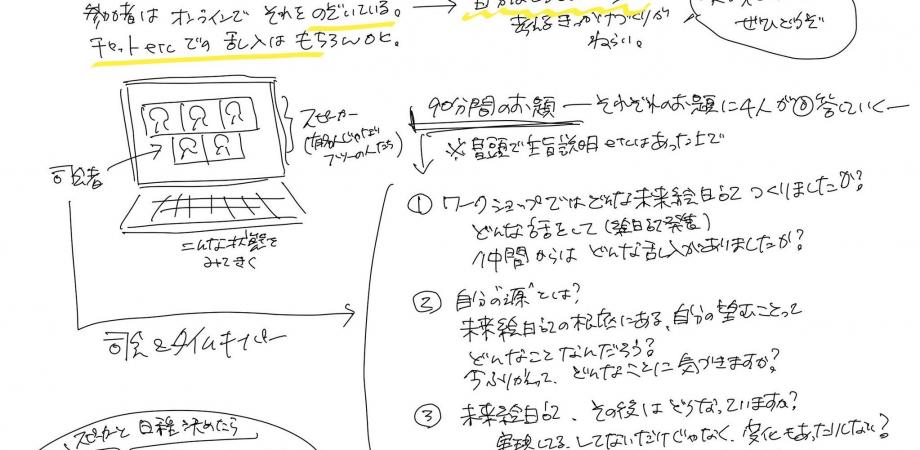 参加者は オンラインで それを のぞいている。
チャット etc での 乱入は もちろん OK。
考えるきっかけづくりが
ねらい。
ぜひどうぞ
90分間のお題 ― それぞれのお題に4人が 答していく ―
※冒頭で主旨説明 etcはあった上で
スピーカー
司会者
こんな状態を
みてきく
司会とタイムキーパー
スピーカーと 日程決めたら
① ワークショップでは どんな 未来絵日記 つくりましたか?
どんな話をして (絵日記発表)
仲間からは どんな乱入がありましたか?
② 自分の"源"とは?
未来絵日記の根底にある、自分の望むことって
どんなこと なんだろう?
今ふりかえって、どんなことに 気づきますか?
③ 未来絵日記、その後は どうなっていますか?
実現してる、してないだけじゃなく、変化もあったりしない?